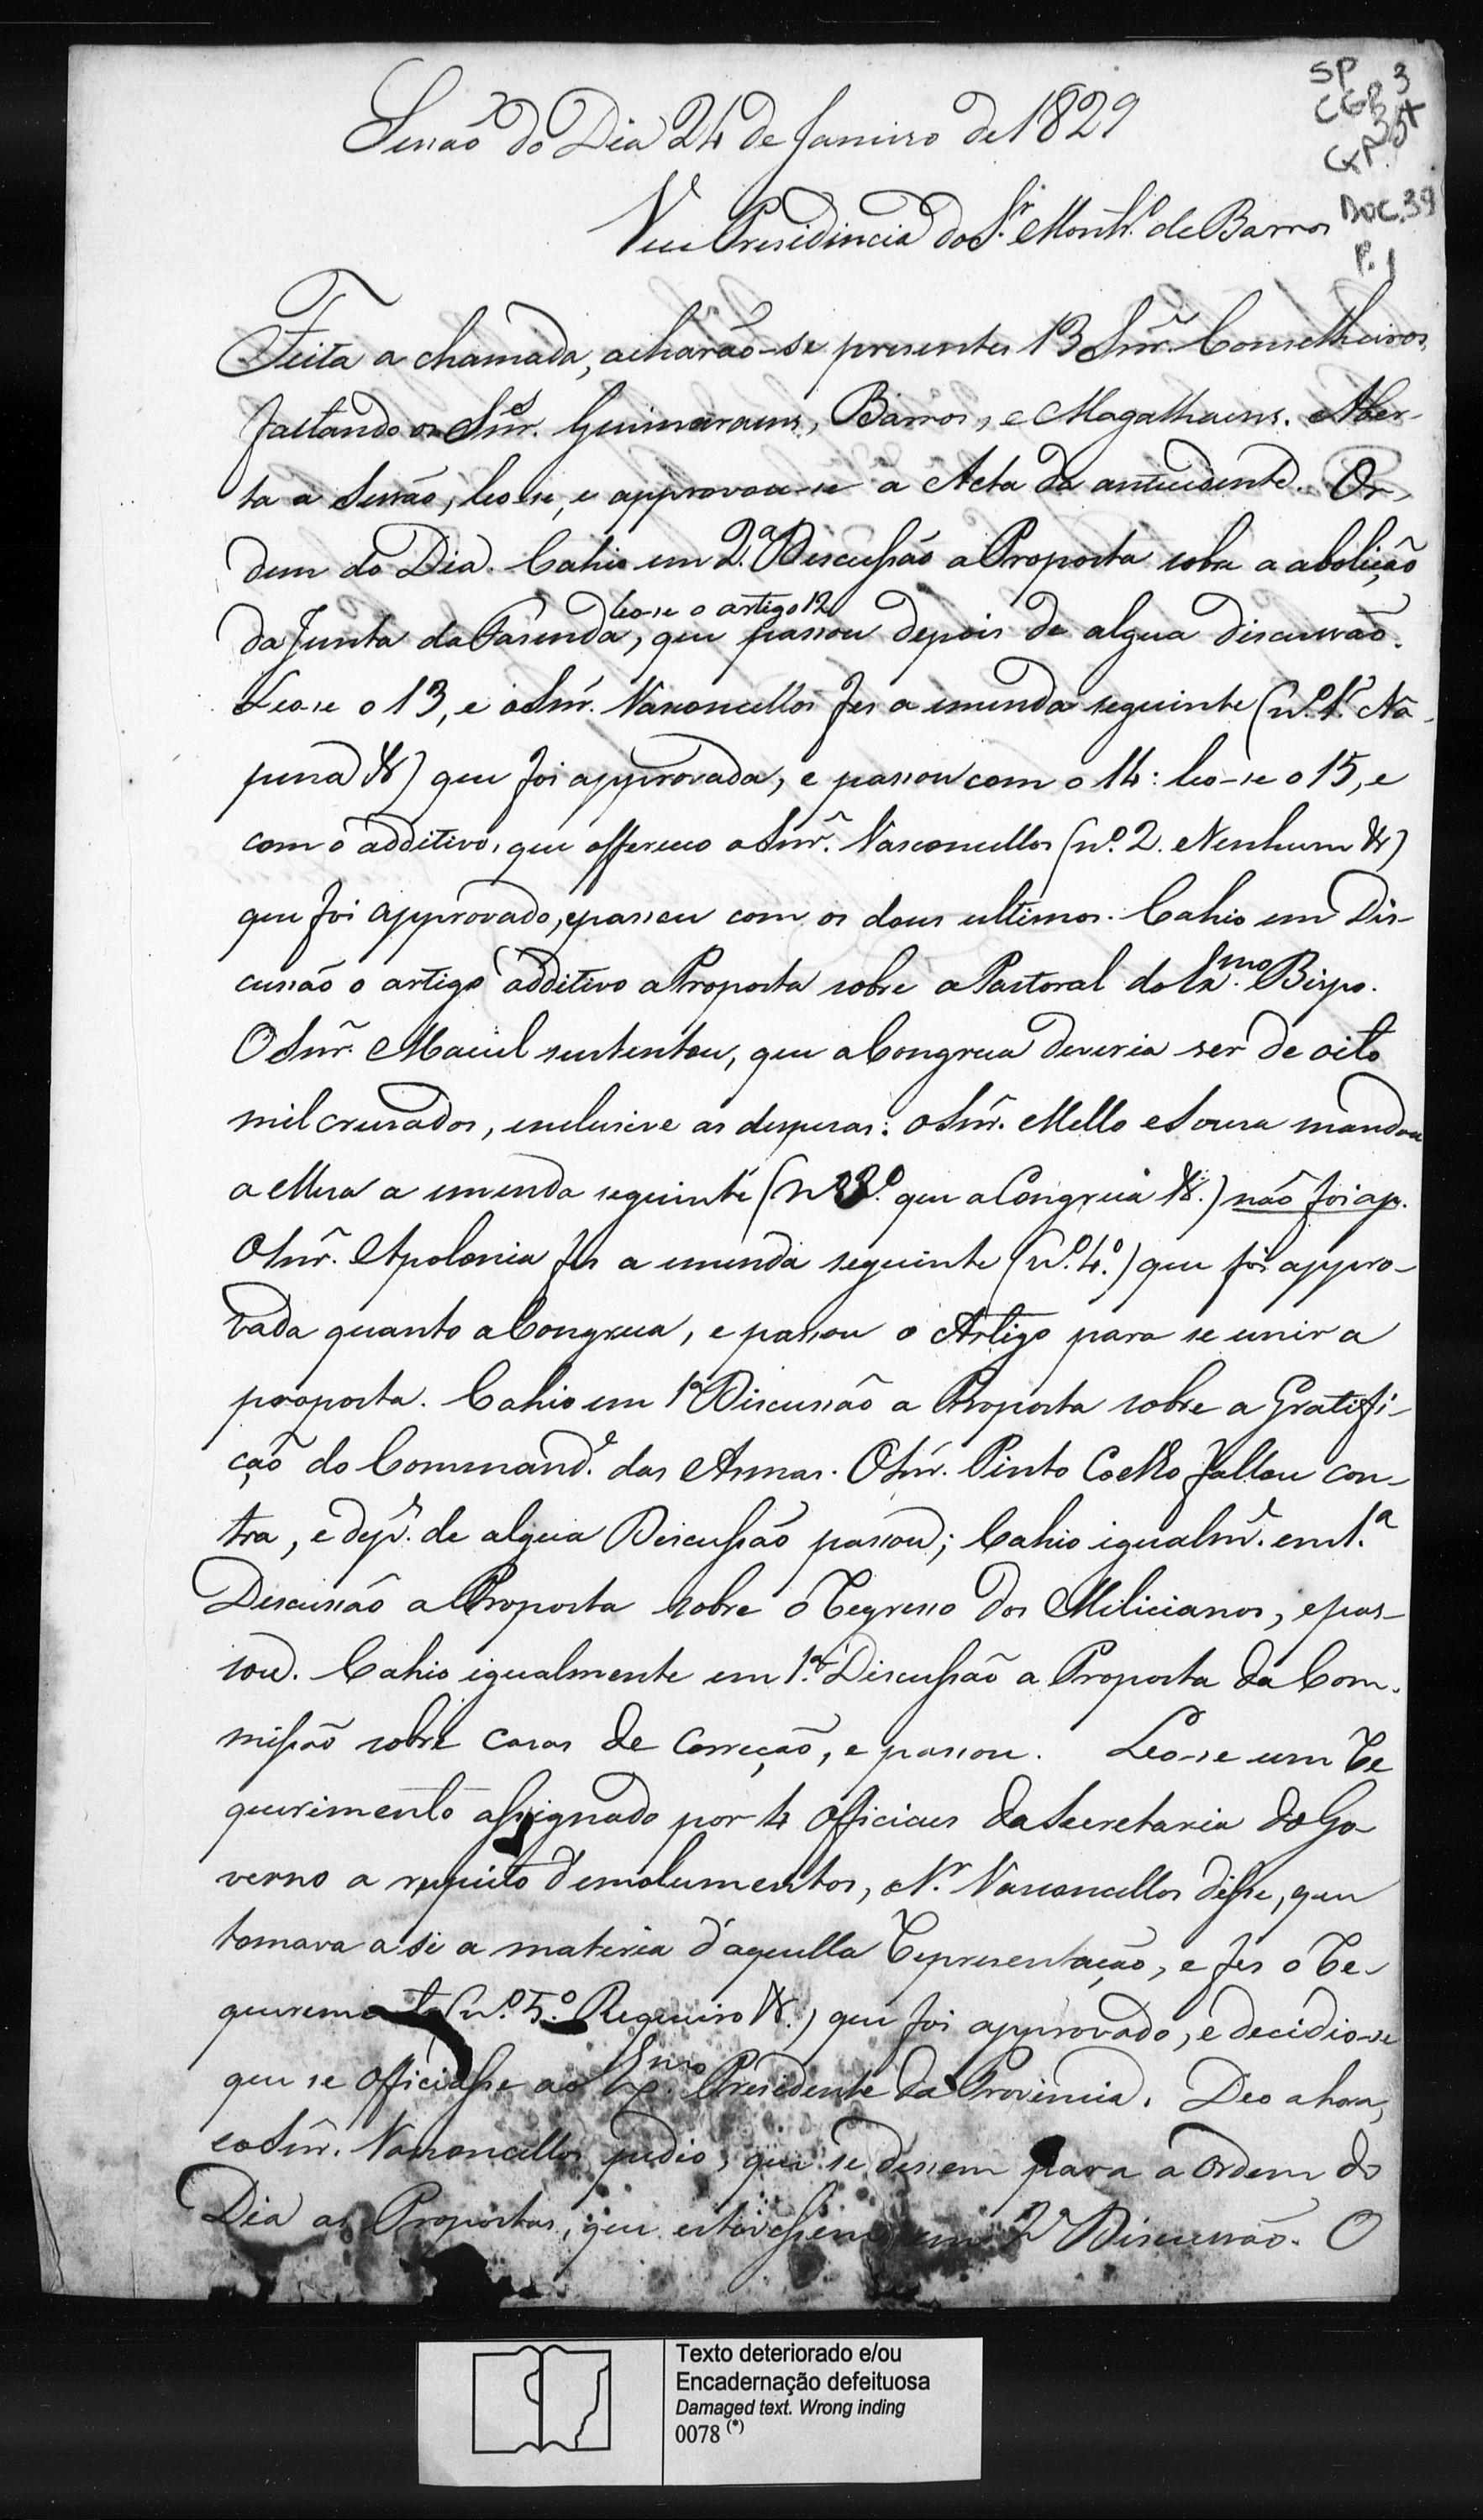 SP 3
CGP 35+
CX.
DOC.39
P.1
Sessaõ do Dia 24 de Janeiro de 1829
Vice Presidencia do Sr. Monteiro de Barros
Feita a chamada, acharaõ-se presentes 13 Snr.es Conselheiros,
faltando os Snr.es Guimaraens, Barros, e Magalhaens. Aber-
ta a Sessaõ, leo-se, e approvou-se a Acta da antecedente. Or-
dem do Dia. Cahio em 2.ª Discussaõ a Proposta sobre a aboliçaõ
leo-se o artigo 12
da Junta da Fasenda, que passou depois de algua discussaõ.
Leo-se o 13, e o Snr. Vasconcellos fes a emenda seguinte (N.º 1.º Na
pena &) que foi approvada, e passou com o 14: leo-se o 15, e
com o additivo, que offereceo o Snr. Vasconcellos (n.º 2. Nenhum &)
que foi approvado, e passou com os dous ultimos. Cahio em Dis-
cussaõ o artigo additivo a Proposta sobre a Pastoral do Ex.mo Bispo.
O Snr. Maciel sustentou, que a Congrua deveria ser de oito
mil crusados, inclusive as despesas: o Snr. Mello e Sousa mandou
a Mesa a emenda seguinte (N 3.º que a Congrua &.) naõ foi ap.
O Snr. Apolonia fes a emenda seguinte (N.º 4.º) que foi appro-
vada quanto a Congrua, e passou o Artigo para se unir a
proposta. Cahio em 1ª Discussaõ a Proposta sobre a Gratifi-
caõ do Command.e das Armas. O Snr. Pinto Coelho fallou con-
tra, e dep.s de algua Discussaõ passou; Cahio igualm.e em 1.ª
Discussaõ a Proposta sobre o Regresso dos Milicianos, e pas-
sou. Cahio igualmente em 1.ª Discussaõ a Proposta da Com-
missaõ sobre casas de Correcçaõ, e passou. Leo-se um Re
querimento assignado por 4 Officiaes da Secretaria do Go-
verno a respeito d'emolumentos, Sr. Vasconcellos disse, que
tomava a si a materia d'aquella Representaçaõ, e fes o Re-
querimento (N.º 5.º Requeiro &.) que foi approvado, e decidio-se
que se officiasse ao Ex.mo Presidente da Provincia. Deo a hora,
e o Snr. Vasconcellos pedio, que se dessem para a Ordem do
Dia as Propostas, que estivessem em 2ª Discussaõ. O
Texto deteriorado e/ou
Encadernação defeituosa
Damaged text. Wrong inding
0078 (*)